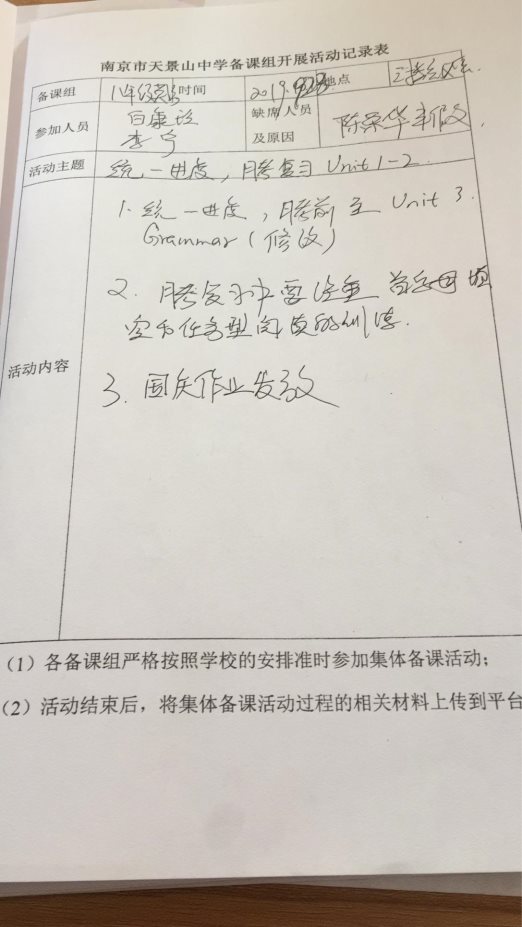 南京市天景山中学备课组开展活动记录表
备课组 八年级英语 时间 2019. 地点
参加人员 白康 缺席人员 陈荣华
李宁 及原因
活动主题 统一进度，月考复习 Unit 1-2.
1. 统一进度，月考前至 Unit 3.
Grammar（修改）
2. 月考复习中要注重 首字母填
空和任务型阅读的训练.
活动内容
3. 国庆作业发放
（1）各备课组严格按照学校的安排准时参加集体备课活动；
（2）活动结束后，将集体备课活动过程的相关材料上传到平台